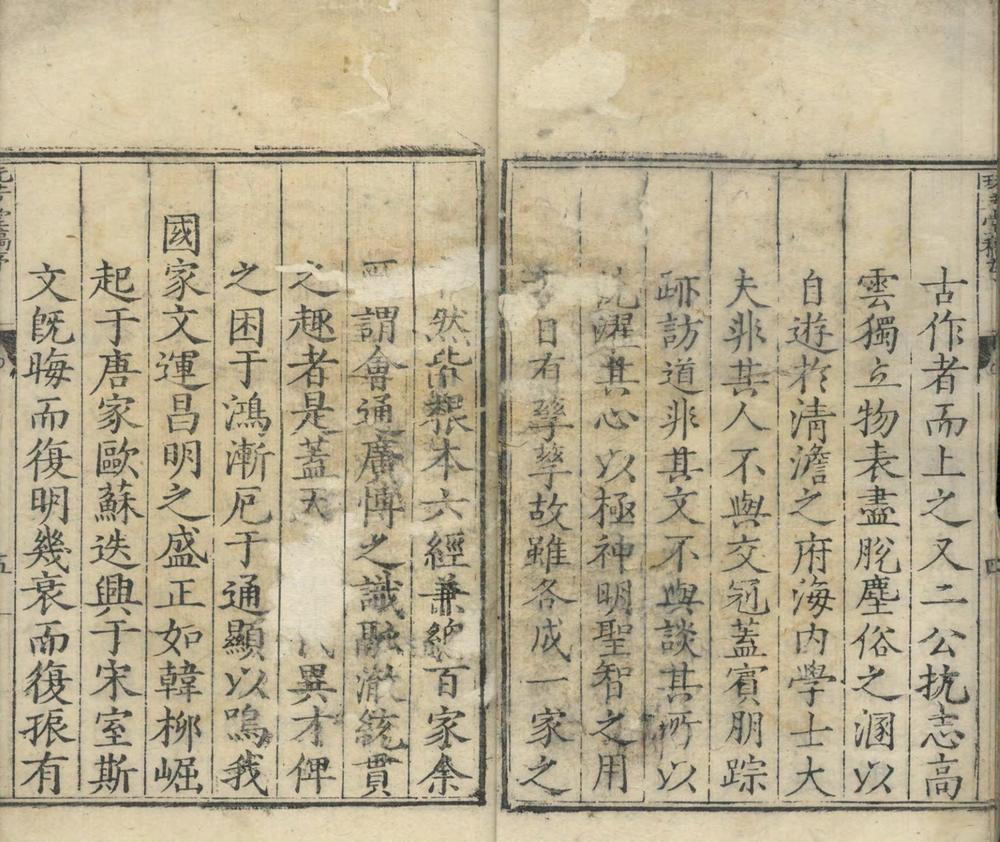 古作者而上之又二公抗志高
雲獨立物表盡脫塵俗之溷以
自遊於清澹之府海内學士大
夫非其人不與交冠蓋賓朋踪
跡訪道非其文不與談其所以
濯其心以極神明聖智之用
日有孳孳故雖各成一家之
然皆根本六經兼綜百家余
謂會通廣博之識融澈統貫
之趣者是蓋天異才俾
之困于鴻漸厄于通顯以鳴我
國家文運昌明之盛正如韓柳崛
起于唐家歐蘇迭興于宋室斯
文旣晦而復明幾衰而復振有
五